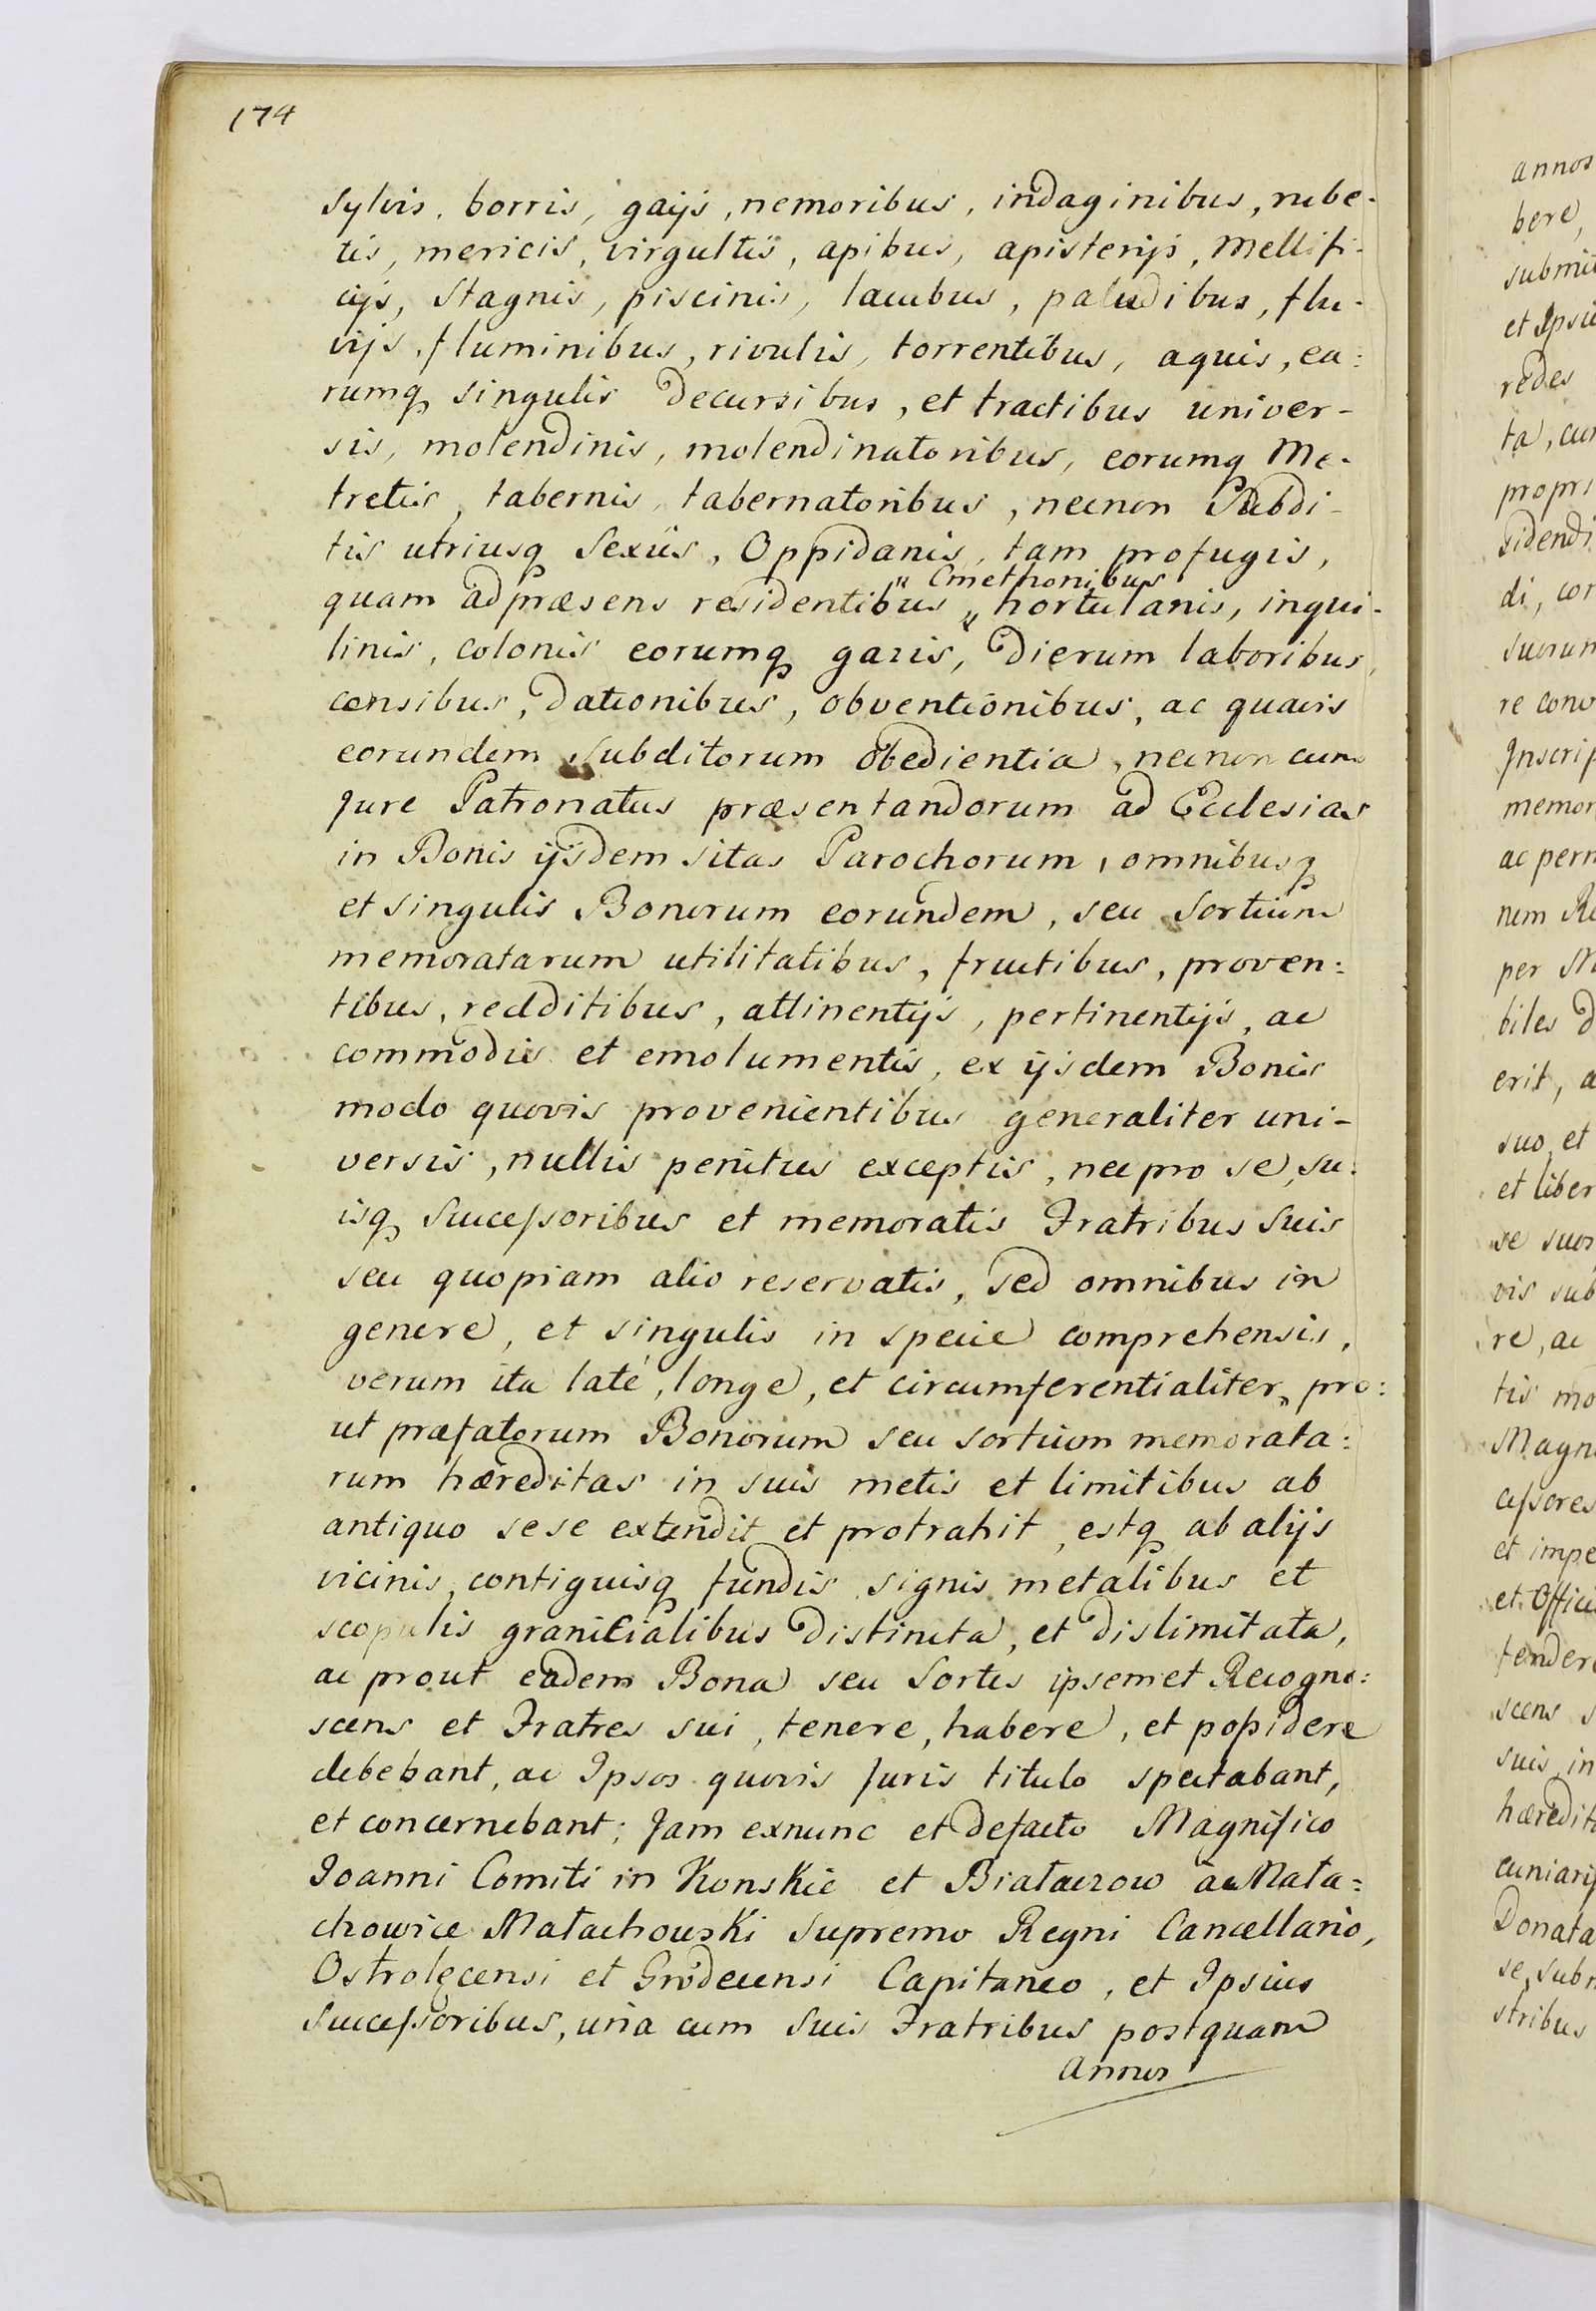 174
sylvis, borris, gaijs, nemoribus, indaginibus, rube-
tis, mericis, virgultis, apibus, apisterijs, Mellifi-
cijs, Stagnis, piscinis, lacubus, paludibus, flu-
vijs, fluminibus, rivulis, torrentibus, aquis, ea:
rumq singulis Decursibus, et tractibus univer-
sis, molendinis, molendinatoribus, eorumq Me-
tretis, tabernis, tabernatoribus, necnon Subdi-
tis utriusq Sexûs, Oppidanis, tam profugis,
" Cmethonibus
quam ad præsens residentibus „ hortulanis, inqui-
linis, colonis eorumq gazis, Dierum laboribus,
censibus, Dationibus, obventionibus, ac quavis
eorundem Subditorum obedientia, necnon cum
Jure Patronatus præsentandorum ad Ecclesias
in Bonis ijsdem sitas Parochorum, omnibusq
et singulis Bonorum eorundem, seu Sortium
memoratarum utilitatibus, fructibus, proven:
tibus, redditibus, attinentijs, pertinentijs, ac
commodis et emolumentis, ex ijsdem Bonis
modo quovis provenientibus generaliter uni-
versis, nullis penitus exceptis, nec pro se, su:
isq Successoribus et memoratis Fratribus Suis
seu quopiam alio reservatis, sed omnibus in
genere, et singulis in specie comprehensis,
verum ita laté, longe, et circumferentialiter, pro:
ut præfatorum Bonorum seu sortium memorata:
rum hæreditas in suis metis et limitibus ab
antiquo sese extendit et protrahit, estq ab alijs
vicinis, contiguisq fundis signis metalibus et
scopulis granicialibus Distincta, et dislimitata,
ac prout eadem Bona seu Sortes ipsemet Recogno:
scens et Fratres sui, tenere, habere, et possidere
debebant, ac Ipsos quovis Juris titulo spectabant,
et concernebant; Jam exnunc et defacto Magnifico
Joanni Comiti in Konskie et Białaczow ac Mała:
chowice Małachowski Supremo Regni Cancellario,
Ostrolęcensi et Grodecensi Capitaneo, et Ipsius
Successoribus, unà cum Suis Fratribus postquam
Annos
annos
bere,
submit
et Ipsiu
redes
ta, cum
propri
sidendi
di, cor
suorum
re conv
Inscrip
memor
ac perm
nem Re
per M
biles D
erit, a
suo, et
et liber
se suos
vis sub
re, ac
tis mo
Magni
cessores
et impe
et Offici
tendere
scens s
suis, in
hæredita
cuniarij
Donata
se, subm
stribus